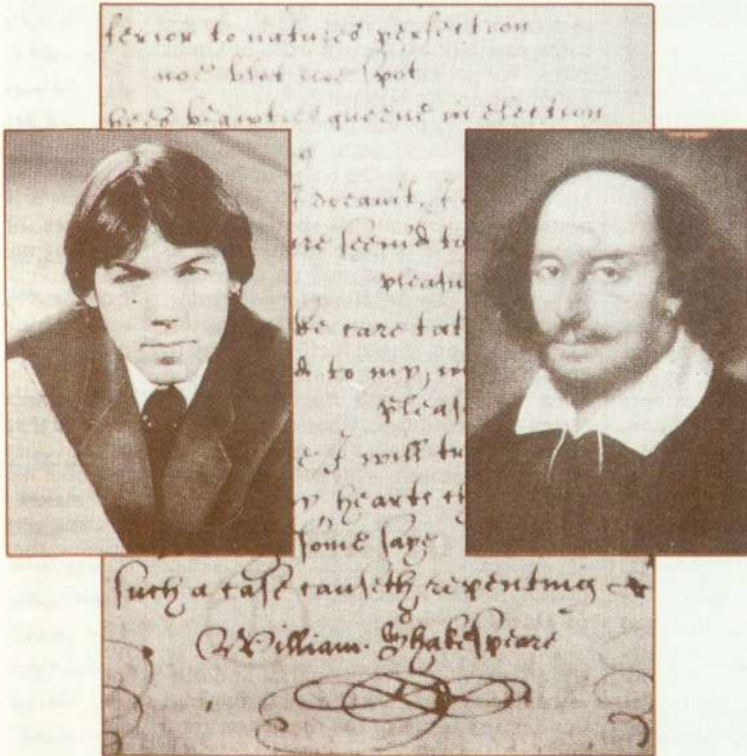 ferior to natures perfection
nor blot nor spot
bees beawties queene in election
g
dreamt, I
re seem'd to
pleasu
be care tak
d to my, w
pleas
e I will tr
y hearte th
some saye
such a case causeth, repenting &
William. Shakespeare